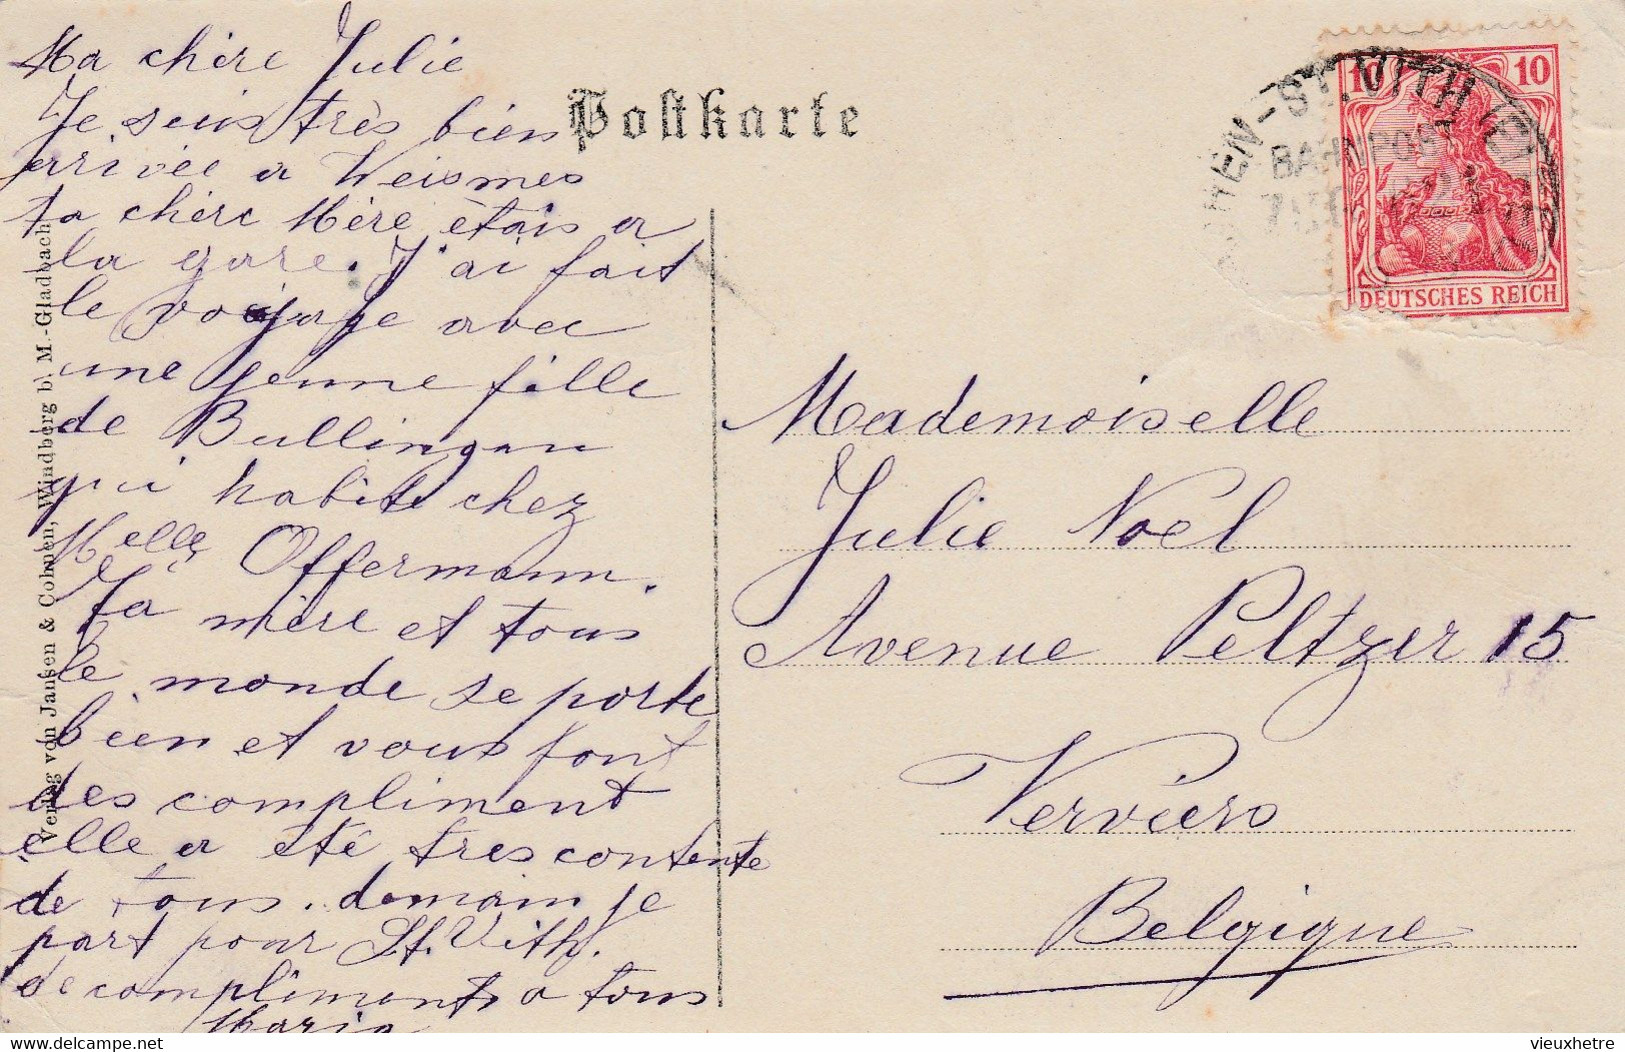 Ma chère Julie
Je suis très bien
arrivée a Weismes
ta chère Mère étais a
la gare. J'ai fait
le voyage avec
une jenne fille
de Bullingen
qui habite chez
Melle Offermann.
Ta mère et tous
le monde se porte
bien et vous font
des compliment
elle a été tres contente
de tous. demain je
part pour St. Vith.
de compliments a tous
Maria
Verlag von Jansen & Cohnen, Windberg b. M.-Gladbach
Postkarte
10 10
DEUTSCHES REICH
ST. VITH
BAHNPOST
Mademoiselle
Julie Noel
Avenue Peltzer 15
Verviers
Belgique
vieuxhetre